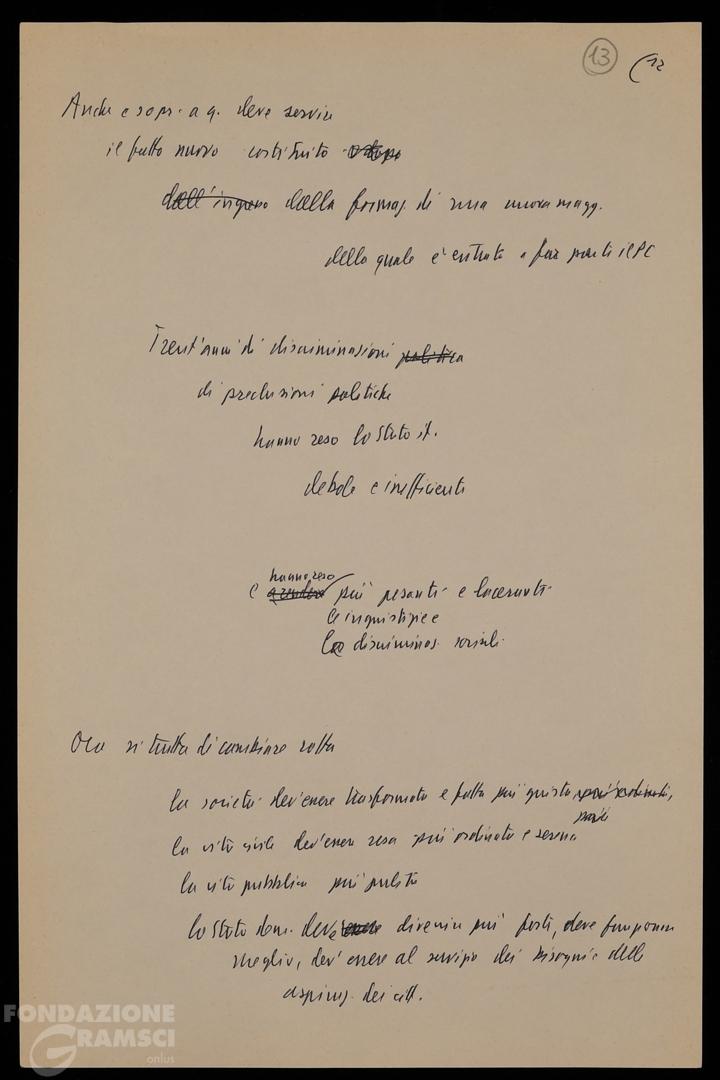 13 (12
Anche e sopr. a q. deve servire
il fatto nuovo costituito dopo
dall'ingreso dalla formaz di una nuova magg.
della quale è entrato a far parte il PC
Trent'anni di discriminazioni politica
di preclusioni politiche
hanno reso lo Stato it.
debole e inefficiente
hanno reso
e più pesanti e laceranti
le ingiustizie e
le discriminaz. sociali.
Ora si tratta di cambiare rotta
la società dev'essere trasformata e fatta più giusta, più ordinata,
più
la vita civile dev'essere resa più ordinata e serena
la vita pubblica più pulita
lo Stato dem. deve essere divenire più forte, deve funzionare
meglio, dev'essere al servizio dei bisogni e delle
aspiraz. dei citt.
FONDAZIONE
GRAMSCI
onlus